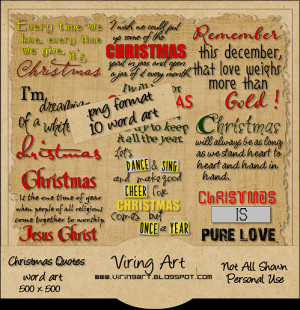 Every time we
love, every time
we give,
it's
Christmas
I wish we could put
up some of the
CHRISTMAS
spirit in jars and open
a jar of it every month
Remember
this december,
that love weighs
more than
Gold !
I'm
dreaming
of a white
Christmas
png format
10 word art
AS
to keep
it all the year.
Christmas
will always be as long
as we stand heart to
heart and hand in
hand.
Christmas
is the one time of year
when people of all religions
come together to worship
Jesus Christ
Let's
DANCE & SING!
and make good
CHEER FOR
CHRISTMAS
comes but
ONCE A YEAR
CHRISTMAS
IS
PURE LOVE
Christmas Quotes
word art
500 x 500
Viring Art
www.viringart.blogspot.com
Not All Shown
Personal Use